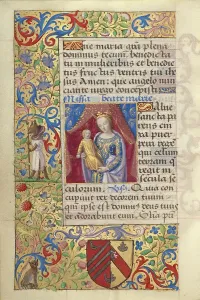 maria plena
dominus tecum. benedicta
tu in mulieribus et benedic
tus fructus ventris tui ihe
sus Amen: que angelo nun
ciante virgo concepisti
Missa beate marie.
Salue
sancta pa
rens eni
xa puer
pera rege
qui celum
terram q
regit in
secula se
culorum. Quia con
cupiuit rex decorem tuum
ipse est dominus deus tuus
et adorabunt eum.